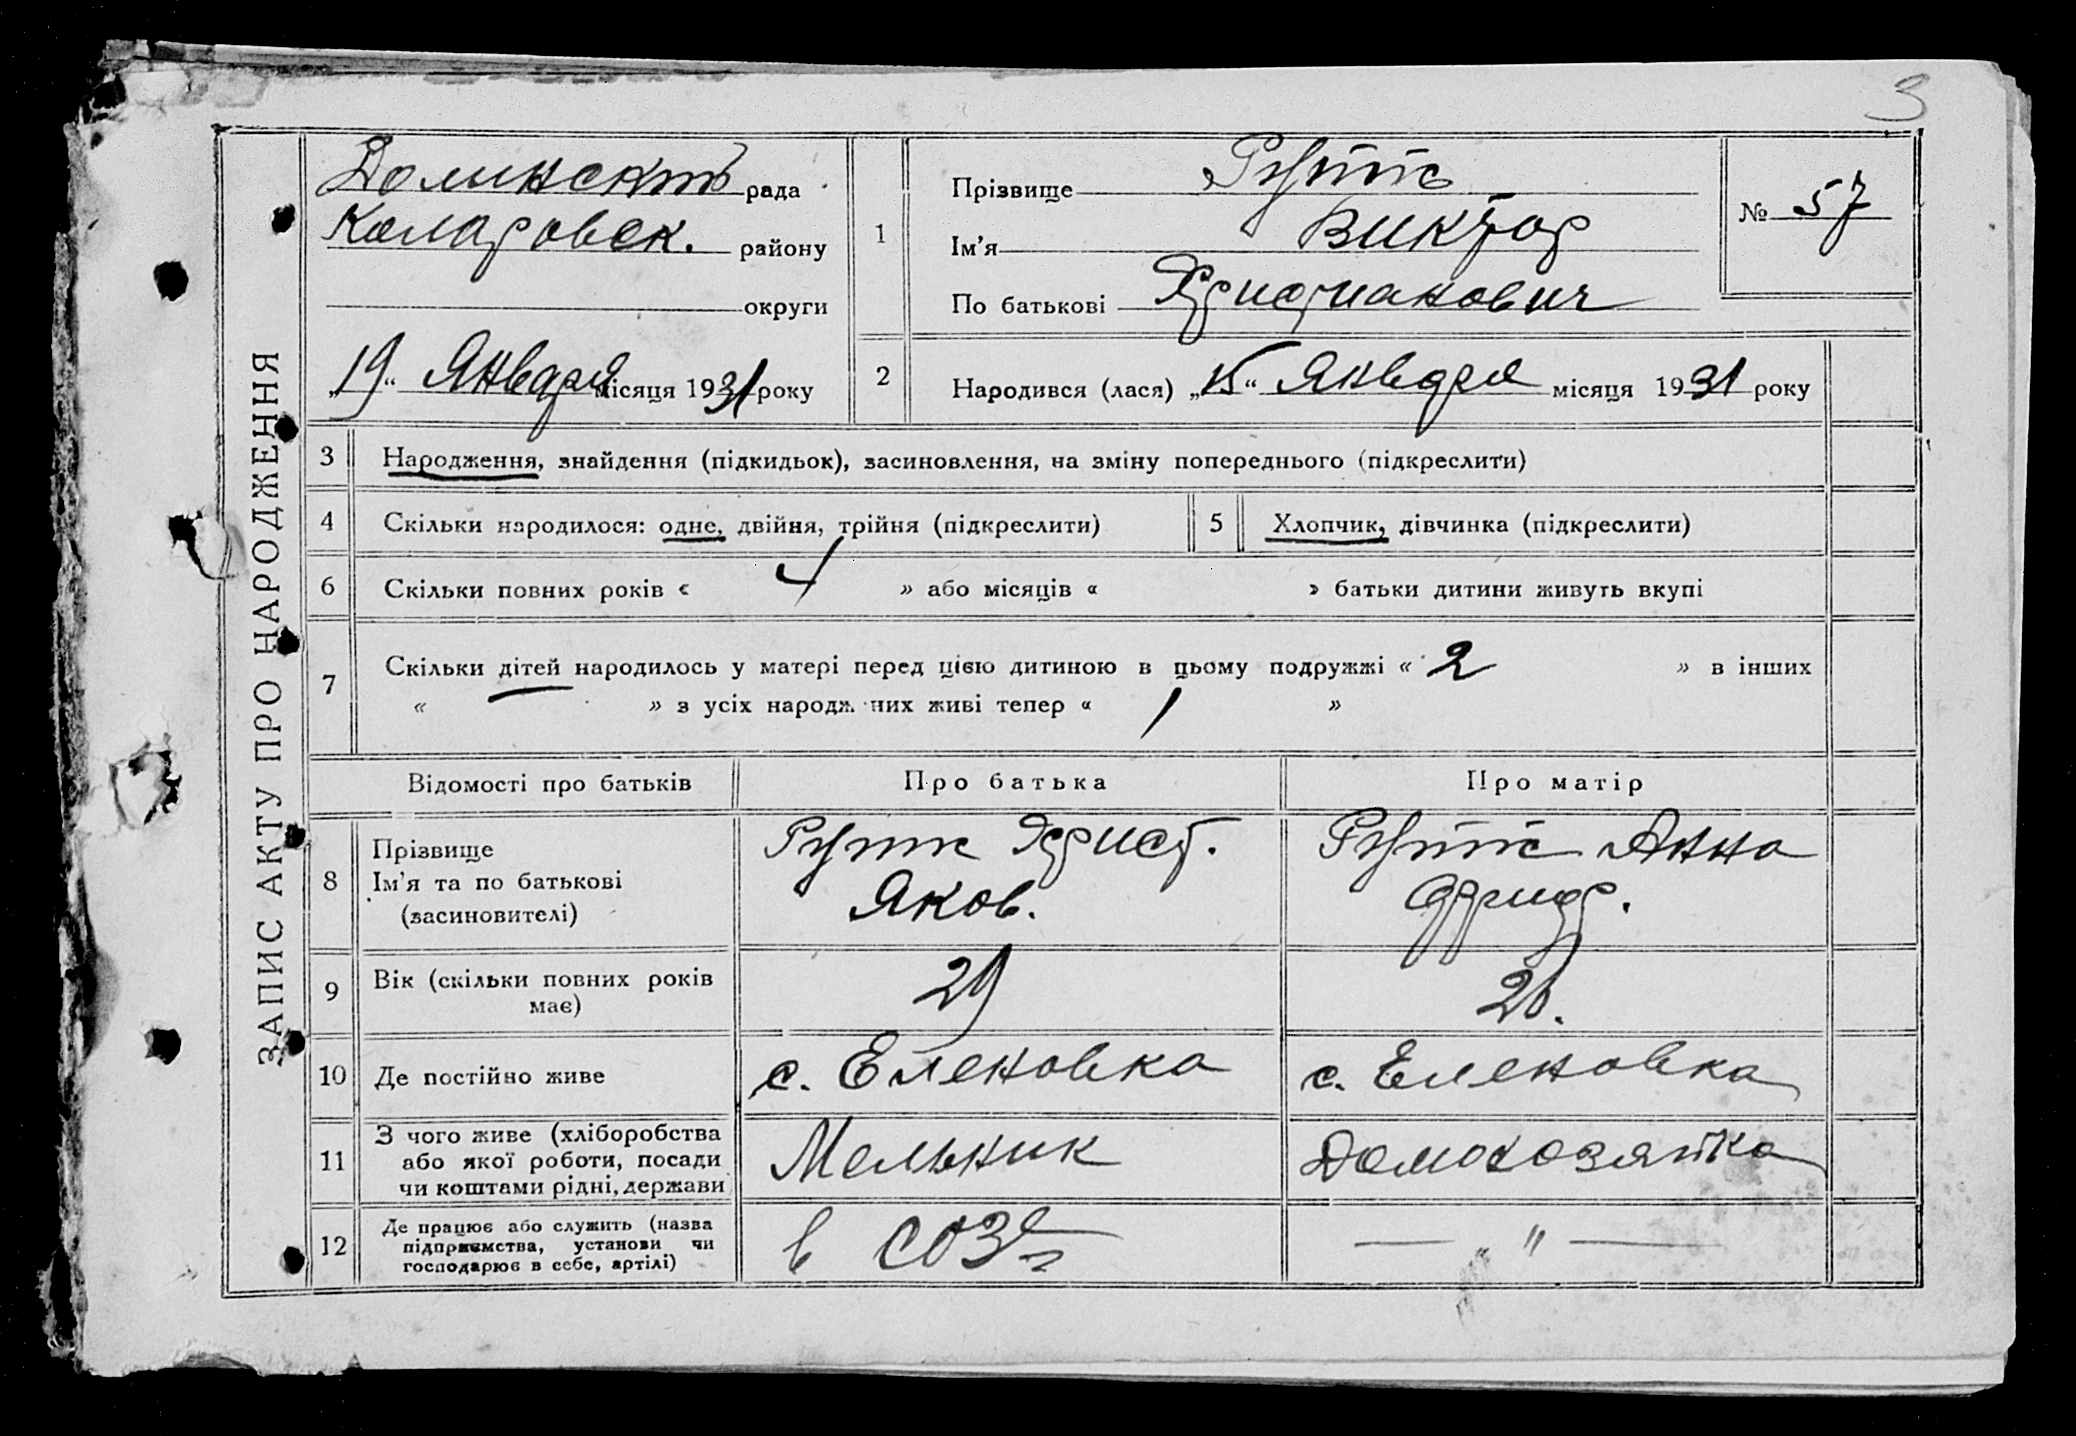 3
ЗАПИС АКТУ ПРО НАРОДЖЕННЯ
Долинскть рада
Коларовск. району
округи
„19“ Января місяця 1931 року
1
Прізвище Рутте
Ім'я Виктор
По батькові Христианович
№ 57
2
Народився (лася) „15“ Января місяця 1931 року
3 Народження, знайдення (підкидьок), засиновлення, на зміну попереднього (підкреслити)
4 Скільки народилося: одне, двійня, трійня (підкреслити)
5 Хлопчик, дівчинка (підкреслити)
6 Скільки повних років « 4 » або місяців « » батьки дитини живуть вкупі
7 Скільки дітей народилось у матері перед цією дитиною в цьому подружжі « 2 » в інших
« — » з усіх народж них живі тепер « 1 »
Відомості про батьків Про батька Про матір
8 Прізвище
Ім'я та по батькові
(засиновителі)
Рутте Христ.
Яков.
Рутте Анна
Фридр.
9 Вік (скільки повних років
має)
29
26.
10 Де постійно живе с. Еленовка с. Еленовка
11 З чого живе (хліборобства
або якої роботи, посади
чи коштами рідні, держави
Мельник
Домохозяйка
12 Де працює або служить (назва
підприємства, установи чи
господарює в себе, артілі)
в СОЗе
— „ —